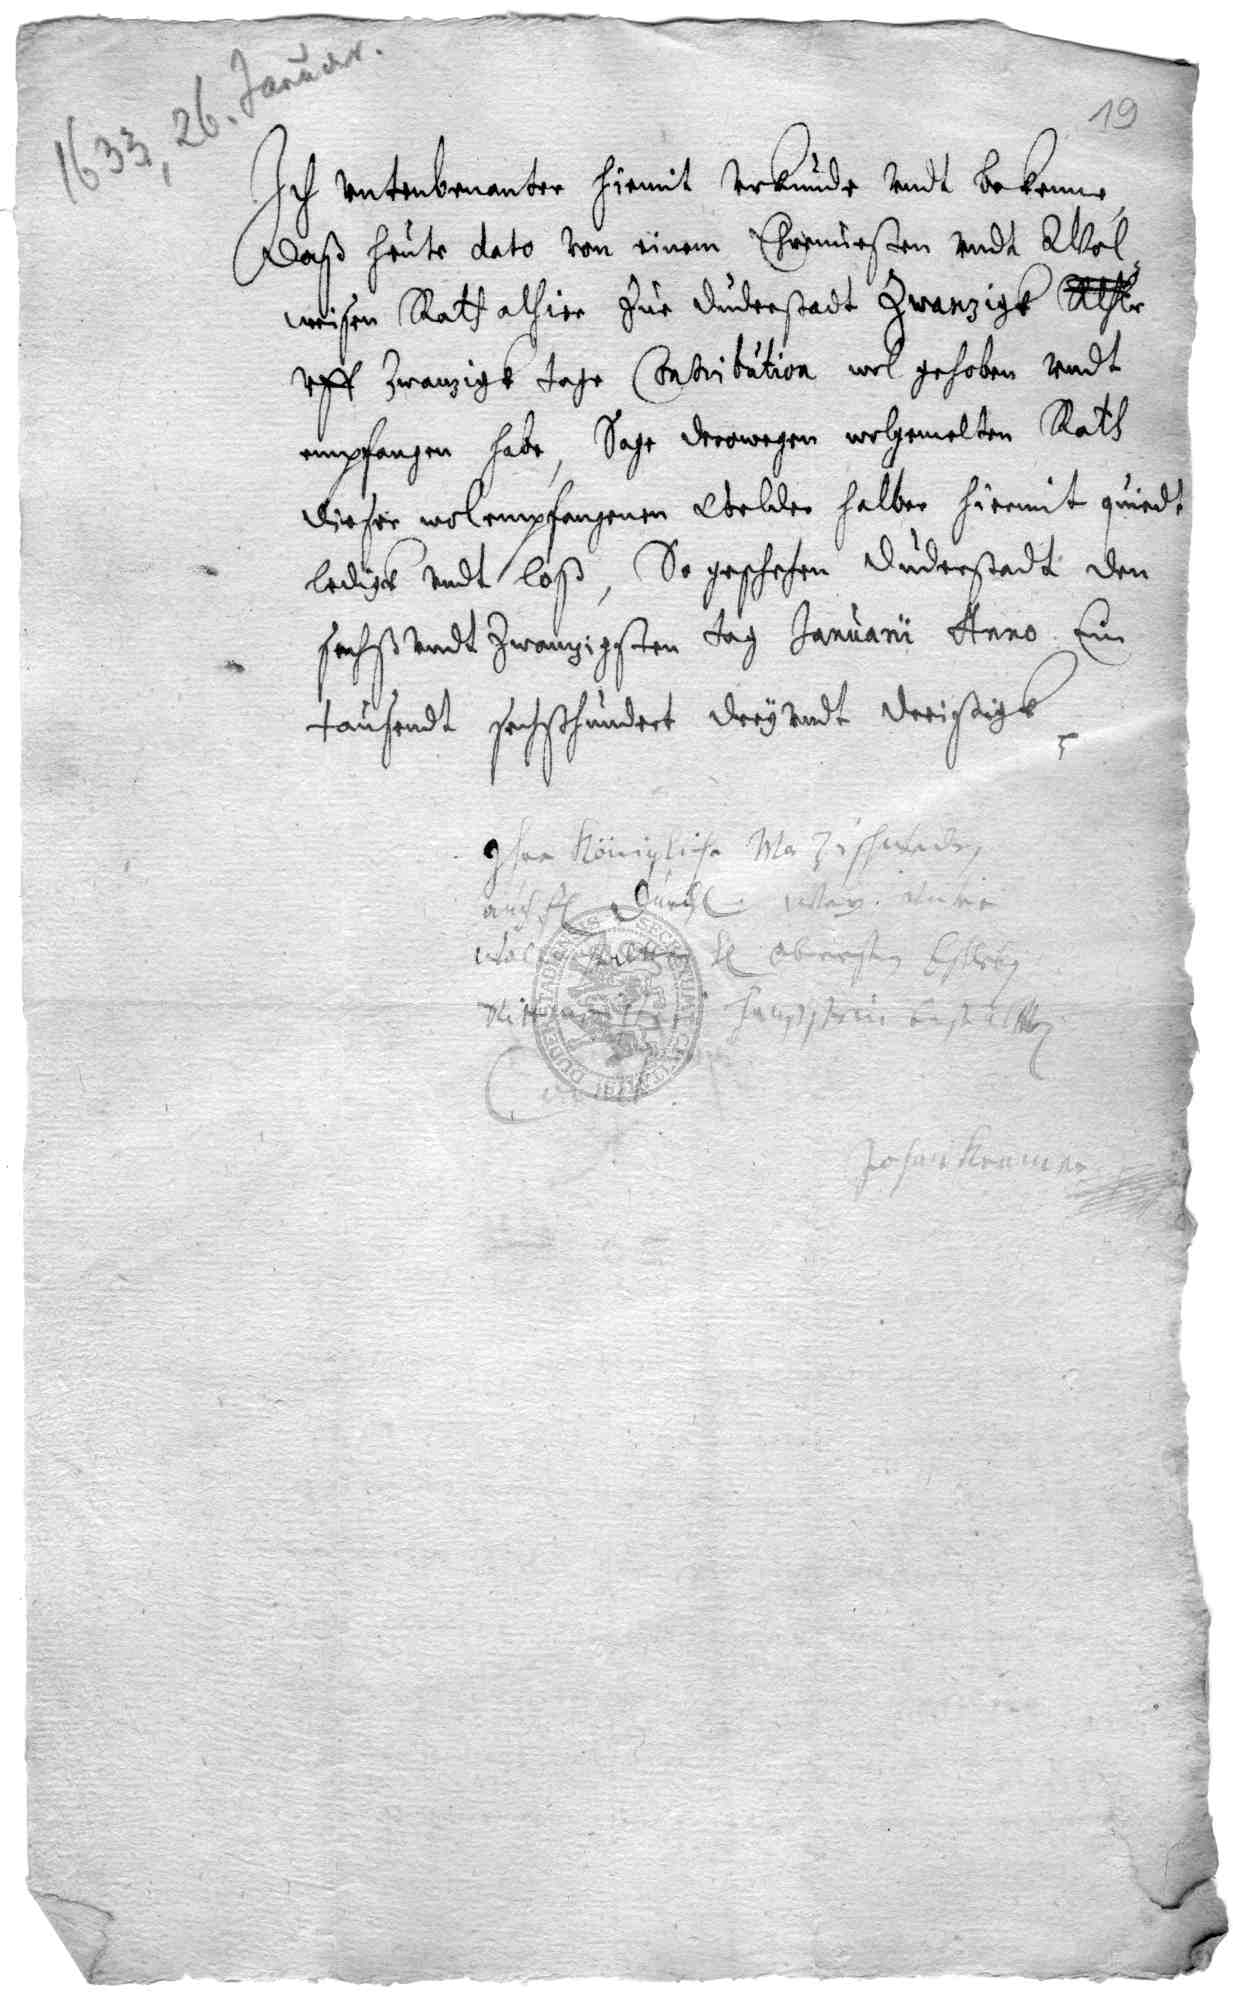 1633, 26. Januar.
19
Ich untenbenanter hiemit urkunde undt bekenne,
Daß heute dato von einem Ehrnuesten undt Wol-
weisen Rath alhier Zue Duderstadt Zwanzigk Rthlr
uff Zwanzigk tage Contribution wol gehoben undt
empfangen habe, Sage derowegen wolgemelten Rath
dieser wolempfangenen Gelder halber hiermit quiedt
ledigk undt loß, So geschehen Duderstadt den
sechß undt Zwanzigsten tag Januarii Anno Ein
tausendt sechßhundert drey undt dreißigk
Ihre Königliche Ma Zu schweden
auch fl Durchl.
obersten
Johan Kramer